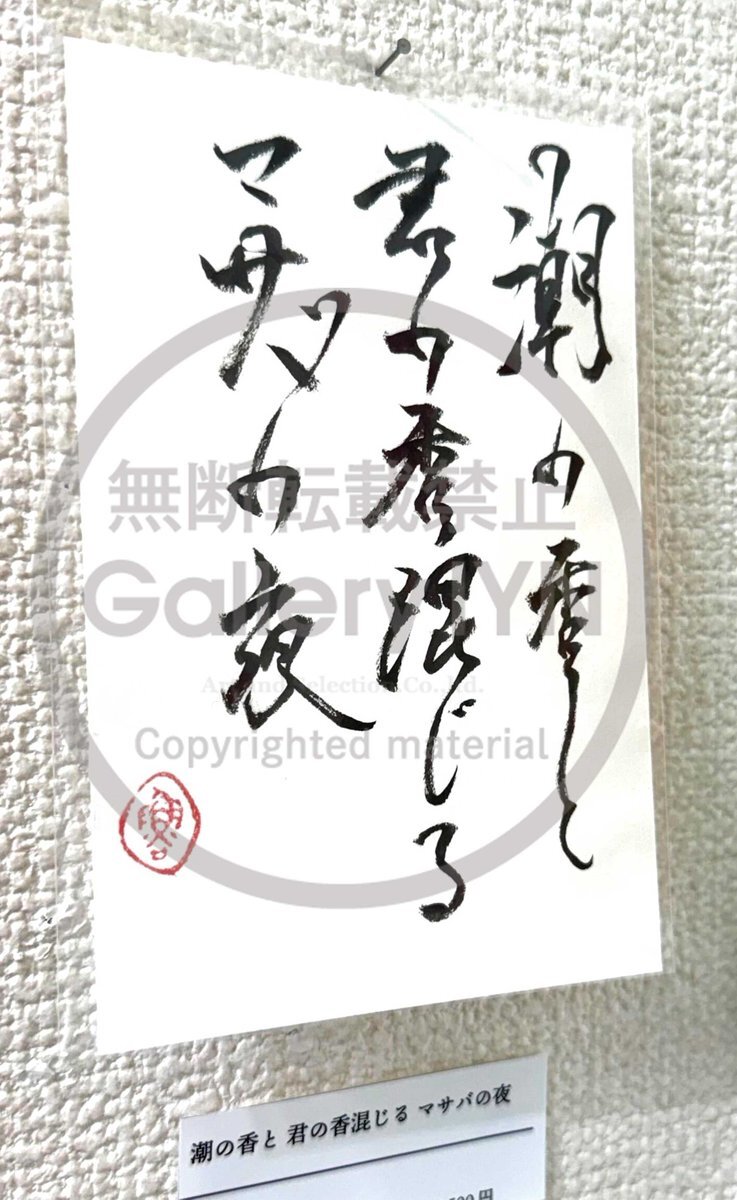 潮の香と
君の香混じる
マサバの夜
無断転載禁止
Gallery IYN
Copyrighted material
潮の香と 君の香混じる マサバの夜
500円